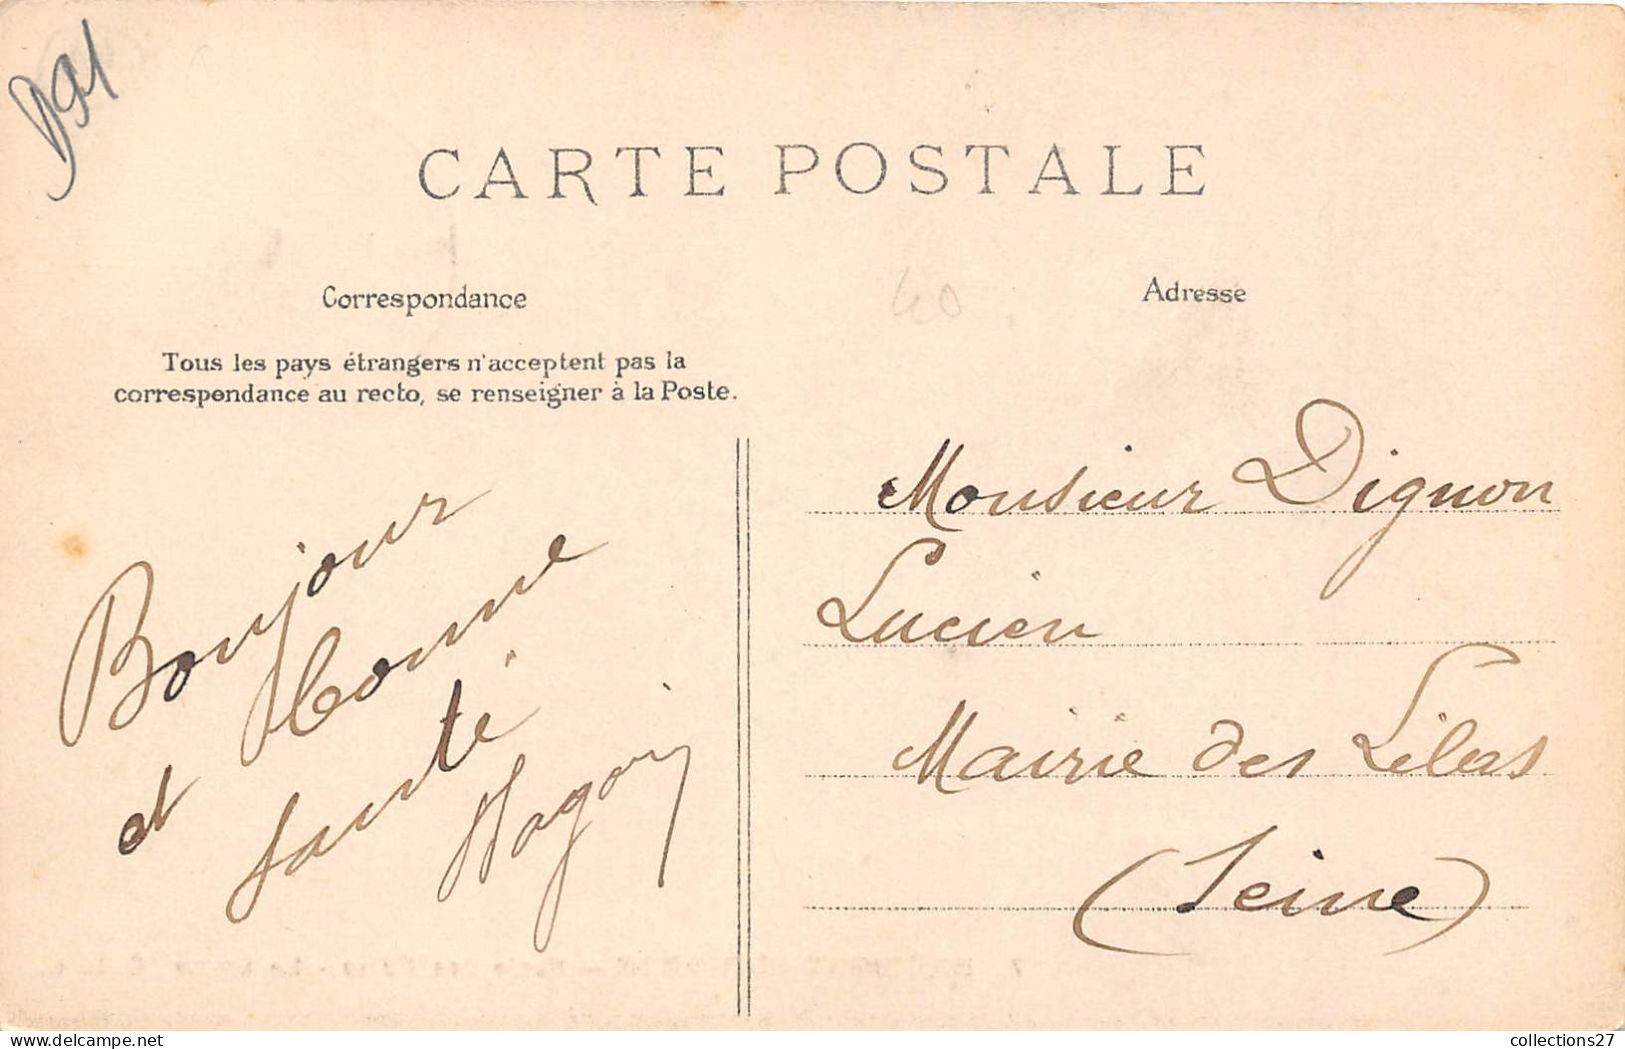 D91
CARTE POSTALE
Correspondance
Tous les pays étrangers n'acceptent pas la
correspondance au recto, se renseigner à la Poste.
Bonjour
et bonne
santé
40
Adresse
Monsieur Dignon
Lucien
Mairie des Lilas
(Seine)
collections27